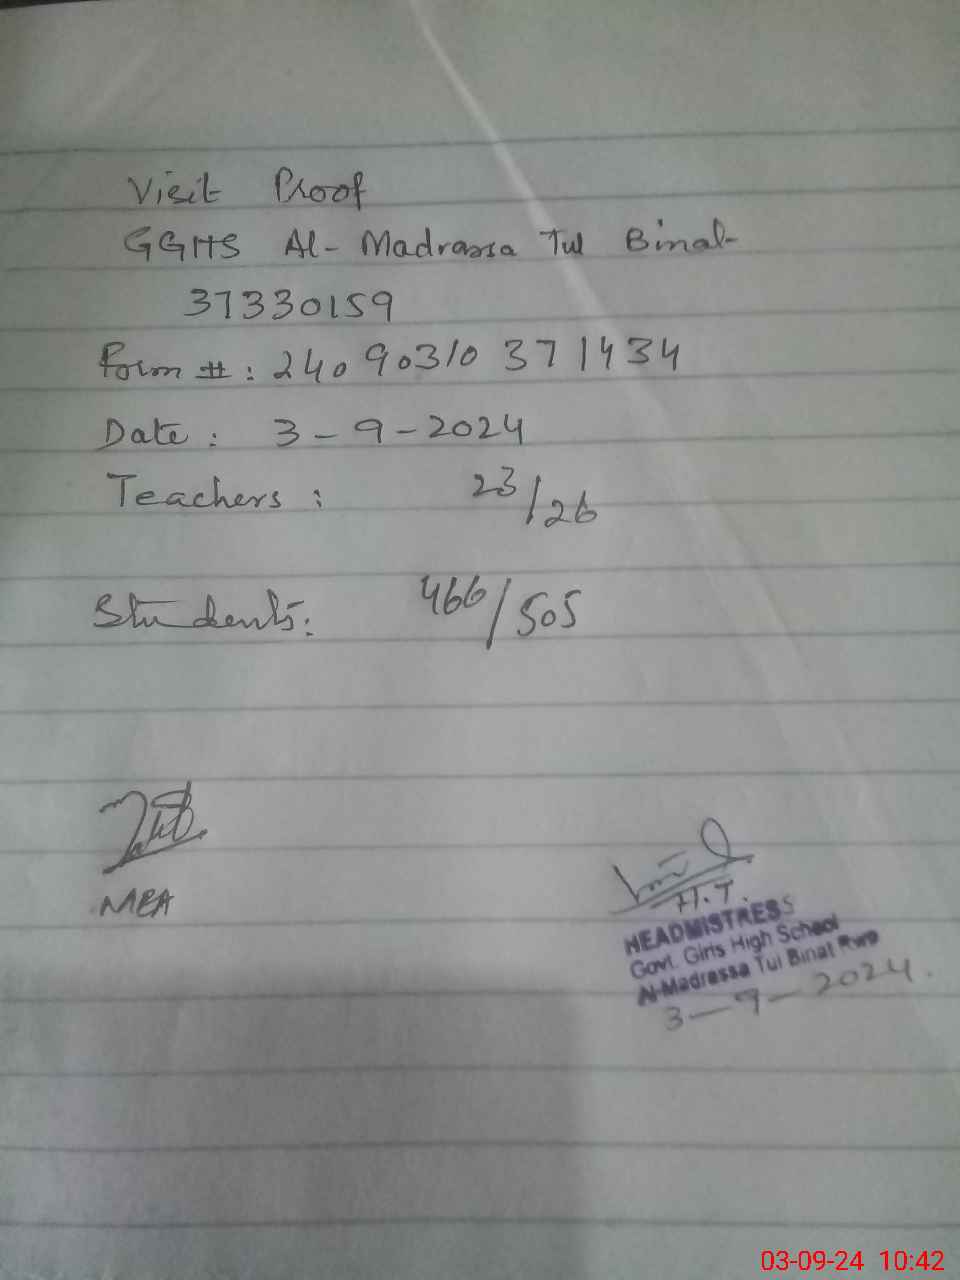 Visit Proof
GGHS Al-Madrassa Tul Binat
37330159
Form #: 24090310371434
Date: 3-9-2024
Teachers: 23/26
Students: 466/505
MEA
H.T.
HEADMISTRESS
Govt. Girls High School
Al-Madrassa Tul Binat
3-9-2024.
03-09-24 10:42